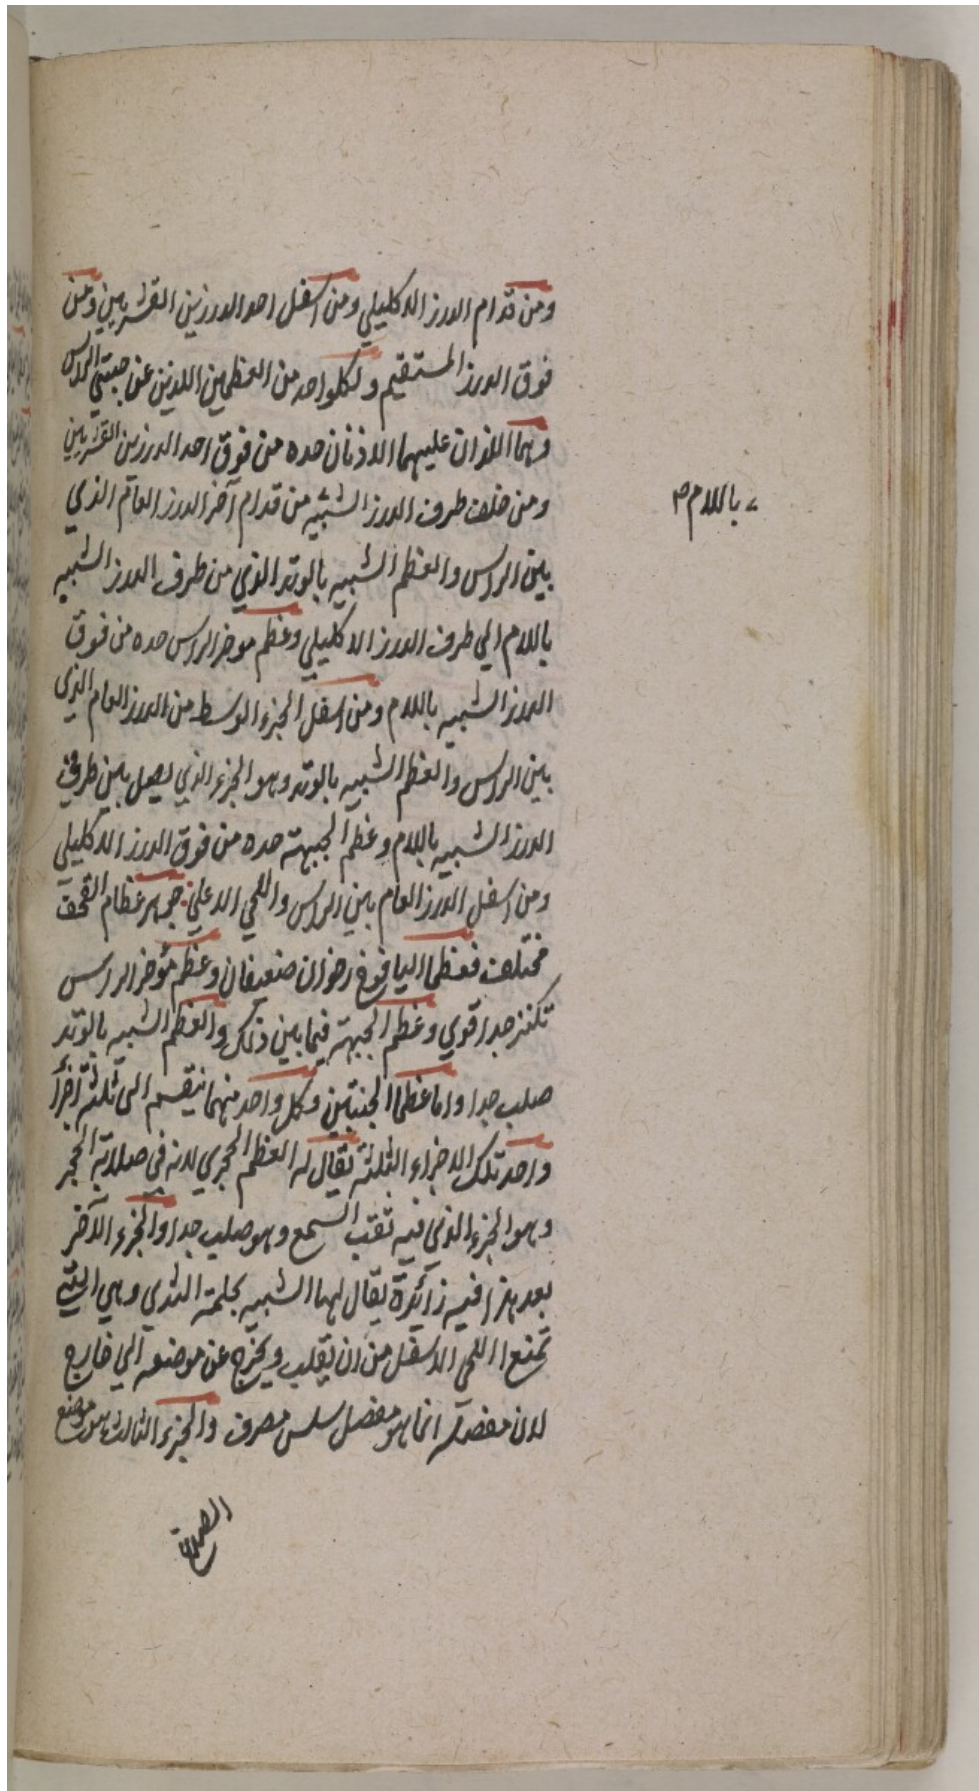 ومن قدام الدرز الاكليلي ومن اسفل احد الدرزين القشريين ومن
فوق الدرز المستقيم ولكلواحد من العظمين اللذين عن جنبتي الراس
وهما اللذان عليهما الاذنان حده من فوق احد الدرزين القشريين
ومن خلف طرف الدرز الشبيه من قدام آخر الدرز العام الذي
بين الراس والعظم الشبيه بالوتد الذي من طرف الدرز الشبيه
باللام الي طرف الدرز الاكليلي وعظم موخر الراس حده من فوق
الدرز الشبيه باللام ومن اسفل الجزء الوسط من الدرز العام الذي
بين الراس والعظم الشبيه بالوتد وهو الجزء الذي يصل بين طرفي
الدرز الشبيه باللام وعظم الجبهة حده من فوق الدرز الاكليلي
ومن اسفل الدرز العام بين الراس واللحي الاعلي جوهر عظام القحف
مختلف فعظما اليافوخ رخوان ضعيفان وعظم مؤخر الراس
مكتنز جدا قوي وعظم الجبهة فيما بين ذلك والعظم الشبيه بالوتد
صلب جدا واما عظما الجنبتين وكل واحد منهما ينقسم الى ثلثة اجزأ
واحد تلك الاجزاء الثلثة يقال له العظم الحجري لانه في صلابة الحجر
وهو الجزء الذي فيه ثقب السمع وهو صلب جدا والجزء الآخر
بعد هذا فيه زآئدة يقال لها الشبيه بحلمة الثدي وهي التي
تمنع اللحي الاسفل من ان ينقلب ويخرج عن موضعه الي خارج
لان مفصله انما هو مفصل سلس مصرف والجزء الثالث هو موضع
الصدغ
٧ باللام ص